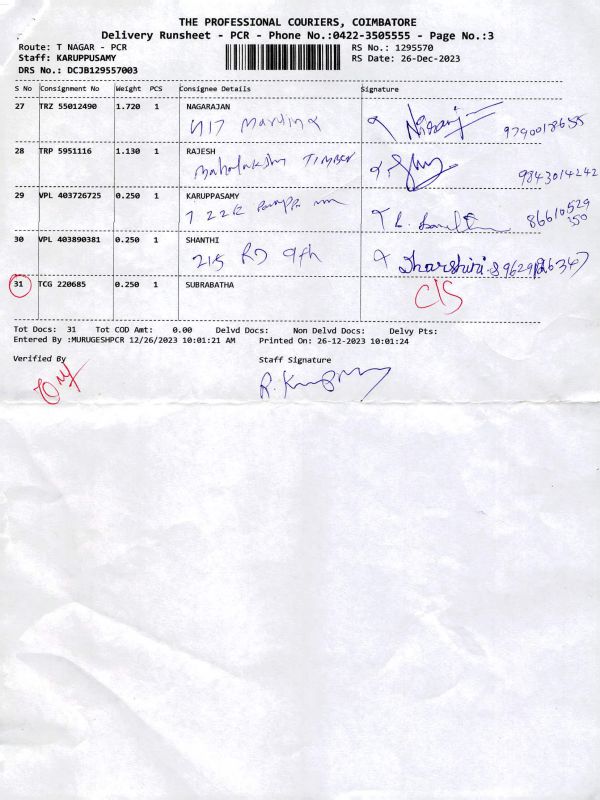 THE PROFESSIONAL COURIERS, COIMBATORE
Delivery Runsheet - PCR - Phone No.:0422-3505555 - Page No.:3
Route: T NAGAR - PCR RS No.: 1295570
Staff: KARUPPUSAMY RS Date: 26-Dec-2023
DRS No.: DCJB129557003
S No Consignment No Weight PCS Consignee Details Signature
27 TRZ 55012490 1.720 1 NAGARAJAN
9790018655
28 TRP 5951116 1.130 1 RAJESH
Mahalakshmi TIMBER 9843014242
29 VPL 403726725 0.250 1 KARUPPASAMY
30 VPL 403890381 0.250 1 SHANTHI
215 RD 9th Dharshini
31 TCG 220685 0.250 1 SUBRABATHA
C/S
Tot Docs: 31 Tot COD Amt: 0.00 Delvd Docs: Non Delvd Docs: Delvy Pts:
Entered By :MURUGESHPCR 12/26/2023 10:01:21 AM Printed On: 26-12-2023 10:01:24
Verified By Staff Signature